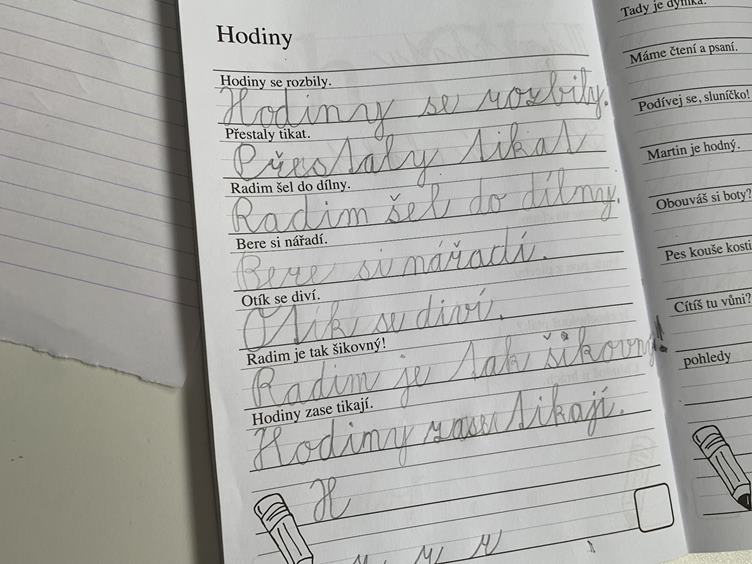 Hodiny
Hodiny se rozbily.
Hodiny se rozbily.
Přestaly tikat.
Přestaly tikat
Radim šel do dílny.
Radim šel do dílny.
Bere si nářadí.
Bere si nářadí.
Otík se diví.
Otík se diví.
Radim je tak šikovný!
Radim je tak šikovný!
Hodiny zase tikají.
Hodiny zase tikají.
H
Tady je dýmka.
Máme čtení a psaní.
Podívej se, sluníčko!
Martin je hodný.
Obouváš si boty?
Pes kouše kosti
Cítíš tu vůni?
pohledy